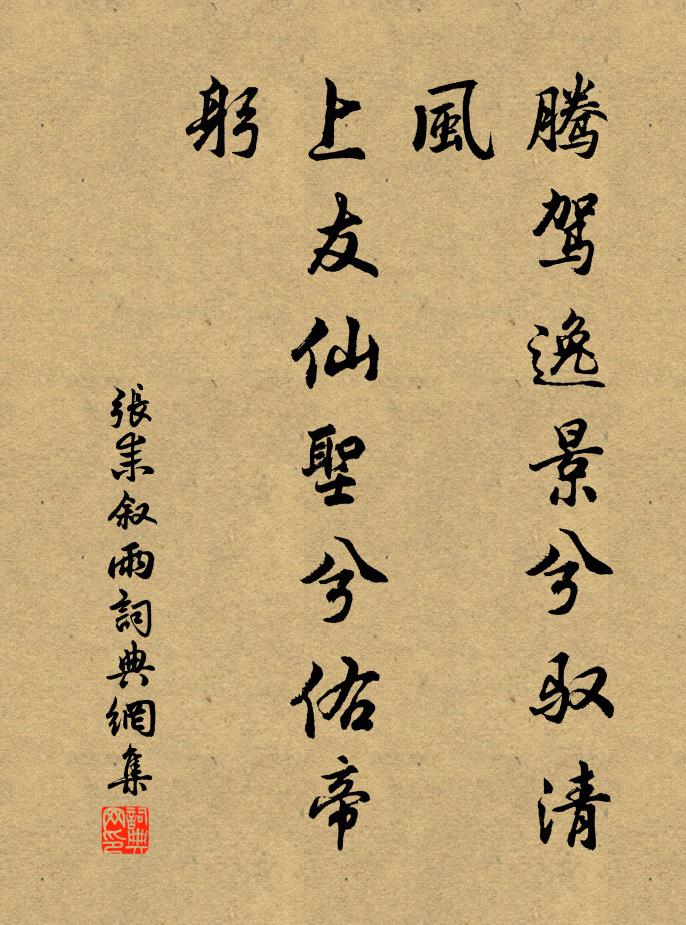 騰駕逸景兮馭清
風
上友仙聖兮佑帝
躬
張耒敘雨詞典網集
詞典
网印